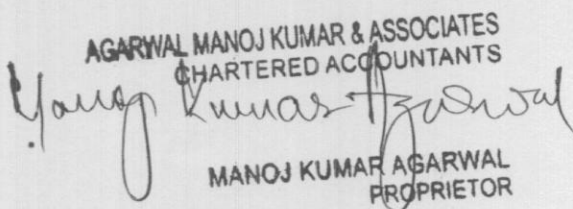 AGARWAL MANOJ KUMAR & ASSOCIATES
CHARTERED ACCOUNTANTS
Manoj Kumar Agarwal
MANOJ KUMAR AGARWAL
PROPRIETOR